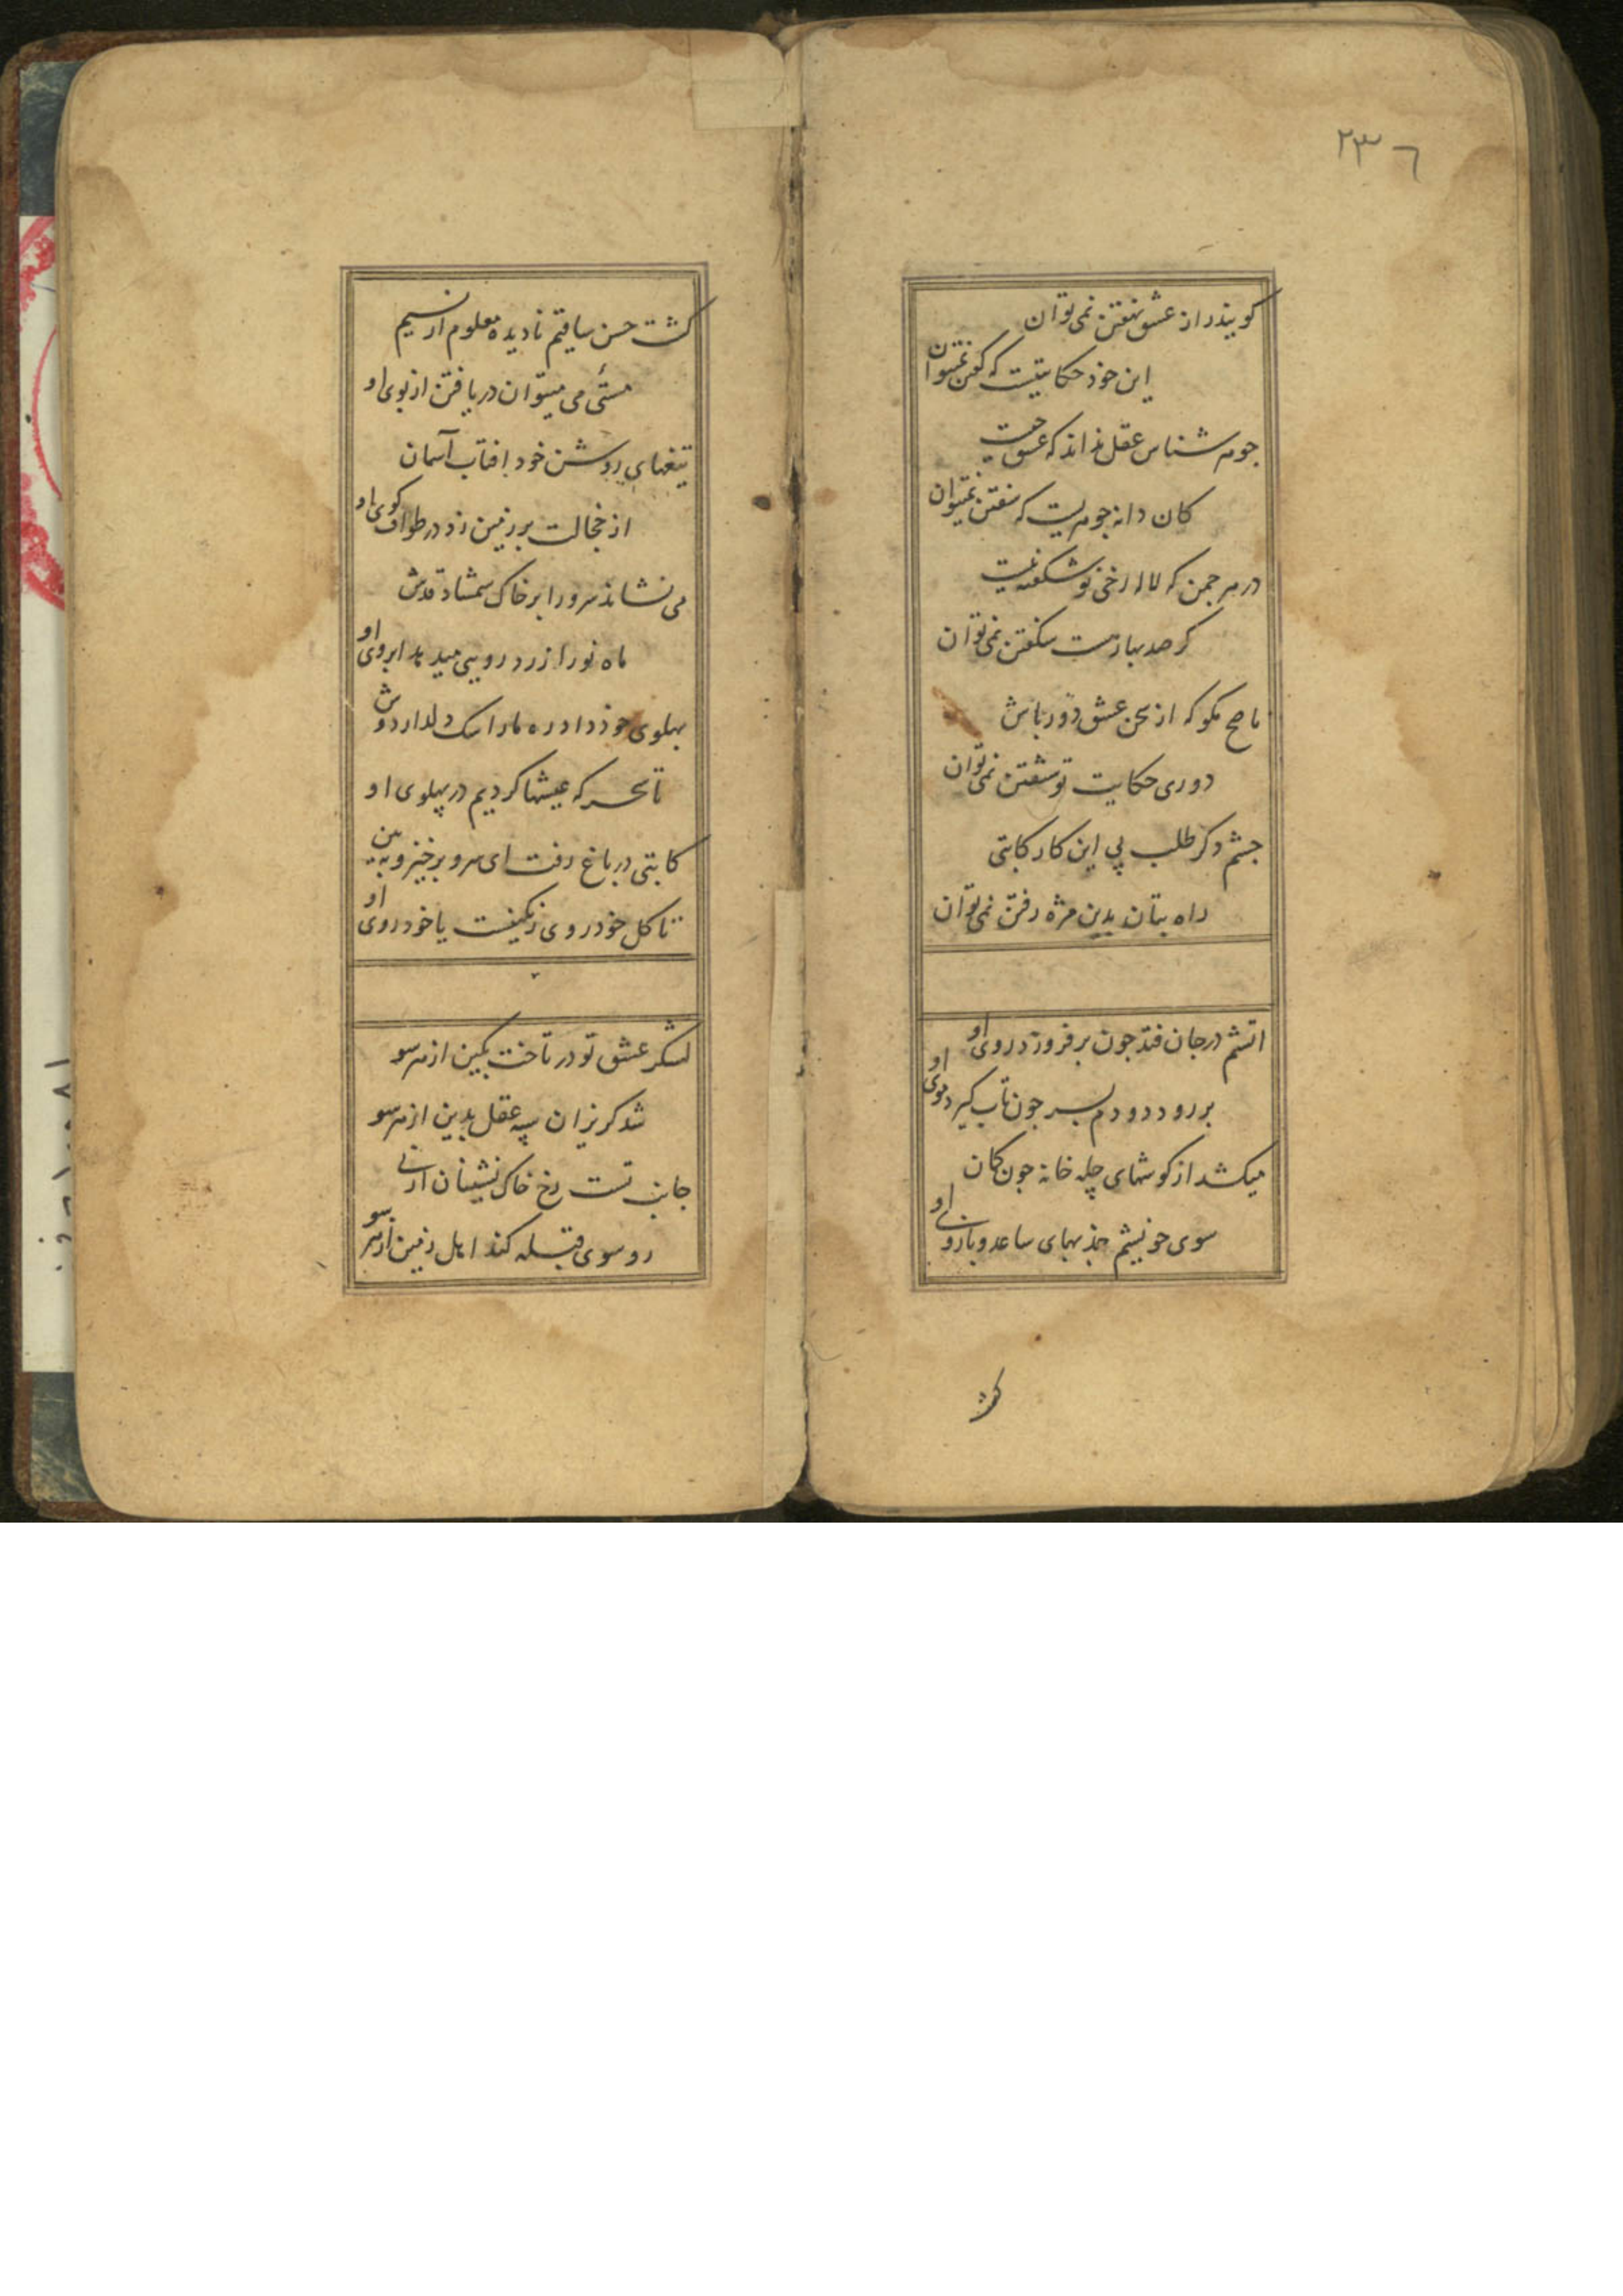 ۲۳۶
کویند راز عشق نهفتن نمی توان
این خود حکایتیست که گفتن نمیتوان
جوهر شناس عقل نداند که عشق چیست
کان دانه جوهریست که سفتن نمیتوان
در هر چمن که لاله رخی نو شکفته نیست
کر صد بهار هست شکفتن نمی توان
ناصح مکو که از سخن عشق دور باش
دوری حکایت تو شنفتن نمی توان
چشم دکر طلب پی این کار کاتبی
راه بتان بدین مژه رفتن نمی توان
اتشم در جان فتد چون بر فروزد روی او
بر رود دودم بسر چون تاب کیرد موی او
میکشد از کوشهای چله خانه چون کمان
سوی خویشم جذبهای ساعد و بازوی او
کشت
کشت حسن ساقیم نادیده معلوم از نسیم
مستی می میتوان دریافتن از بوی او
تیغهای روشن خود افتاب آسمان
از خجالت بر زمین زد در طواف کوی او
می نشاند سرو را بر خاک شمشاد قدش
ماه نو را زرد رویی میدهد ابروی او
پهلوی خود داد ره ما را سک دلدار دوش
تا سحر که عیشها کردیم در پهلوی او
کاتبی در باغ رفت ای سرو برخیز و ببین
تا کل خود روی رنکینست یا خود روی او
لشکر عشق تو در تاخت بکین از هر سو
شد کریزان سپه عقل بدین از هر سو
جانب تست رخ خاک نشینان ارنی
رو سوی قبله کند اهل زمین از هر سو